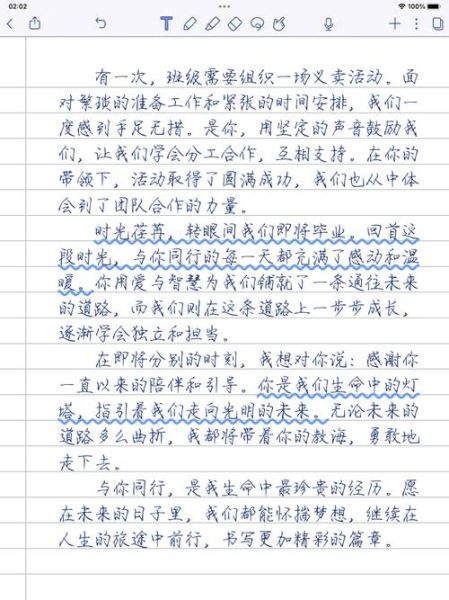 02:02
100%
有一次，班级需要组织一场义卖活动。面
对繁琐的准备工作和紧张的时间安排，我们一
度感到手足无措。是你，用坚定的声音鼓励我
们，让我们学会分工合作，互相支持。在你的
带领下，活动取得了圆满成功，我们也从中体
会到了团队合作的力量。
时光荏苒，转眼间我们即将毕业。回首这
段时光，与你同行的每一天都充满了感动和温
暖。你用爱与智慧为我们铺就了一条通往未来
的道路，而我们则在这条道路上一步步成长，
逐渐学会独立和担当。
在即将分别的时刻，我想对你说：感谢你
一直以来的陪伴和引导。你是我们生命中的灯
塔，指引着我们走向光明的未来。无论未来的
道路多么曲折，我都将带着你的教诲，勇敢地
走下去。
与你同行，是我生命中最珍贵的经历。愿
在未来的日子里，我们都能怀揣梦想，继续在
人生的旅途中前行，书写更加精彩的篇章。